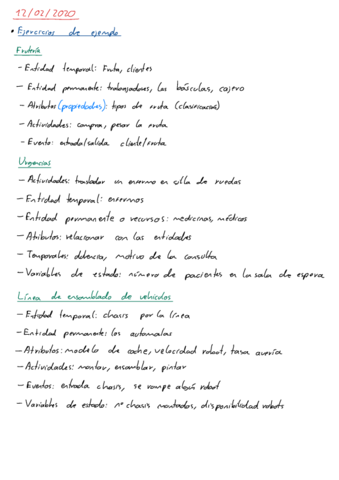 12/02/2020
• Ejercicios de ejemplo
Frutería
- Entidad temporal: Fruta, clientes
- Entidad permanente: trabajadores, las básculas, cajero
- Atributos (propiedades): tipos de fruta (clasificación)
- Actividades: compra, pesar la fruta
- Evento: entrada/salida cliente/fruta
Urgencias
- Actividades: trasladar un enfermo en silla de ruedas
- Entidad temporal: enfermos
- Entidad permanente o recursos: medicinas, médicos
- Atributos: relacionar con las entidades
- Temporales: dolencia, motivo de la consulta
- Variables de estado: número de pacientes en la sala de espera
Línea de ensamblado de vehículos
- Entidad temporal: chasis por la línea
- Entidad permanente: los autómatas
- Atributos: modelo de coche, velocidad robot, tasa avería
- Actividades: montar, ensamblar, pintar
- Eventos: entrada chasis, se rompe algún robot
- Variables de estado: nº chasis montados, disponibilidad robots